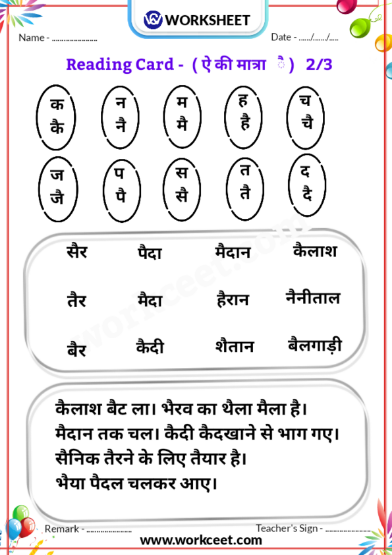 WORKSHEET
Name - ........................ Date - ....../....../.....
Reading Card - ( ऐ की मात्रा ै ) 2/3
क न म ह च
कै नै मै है चै
ज प स त द
जै पै सै तै दै
सैर पैदा मैदान कैलाश
तैर मैदा हैरान नैनीताल
बैर कैदी शैतान बैलगाड़ी
कैलाश बैट ला। भैरव का थैला मैला है।
मैदान तक चल। कैदी कैदखाने से भाग गए।
सैनिक तैरने के लिए तैयार है।
भैया पैदल चलकर आए।
Remark - ........................ Teacher's Sign - ........................
www.workceet.com